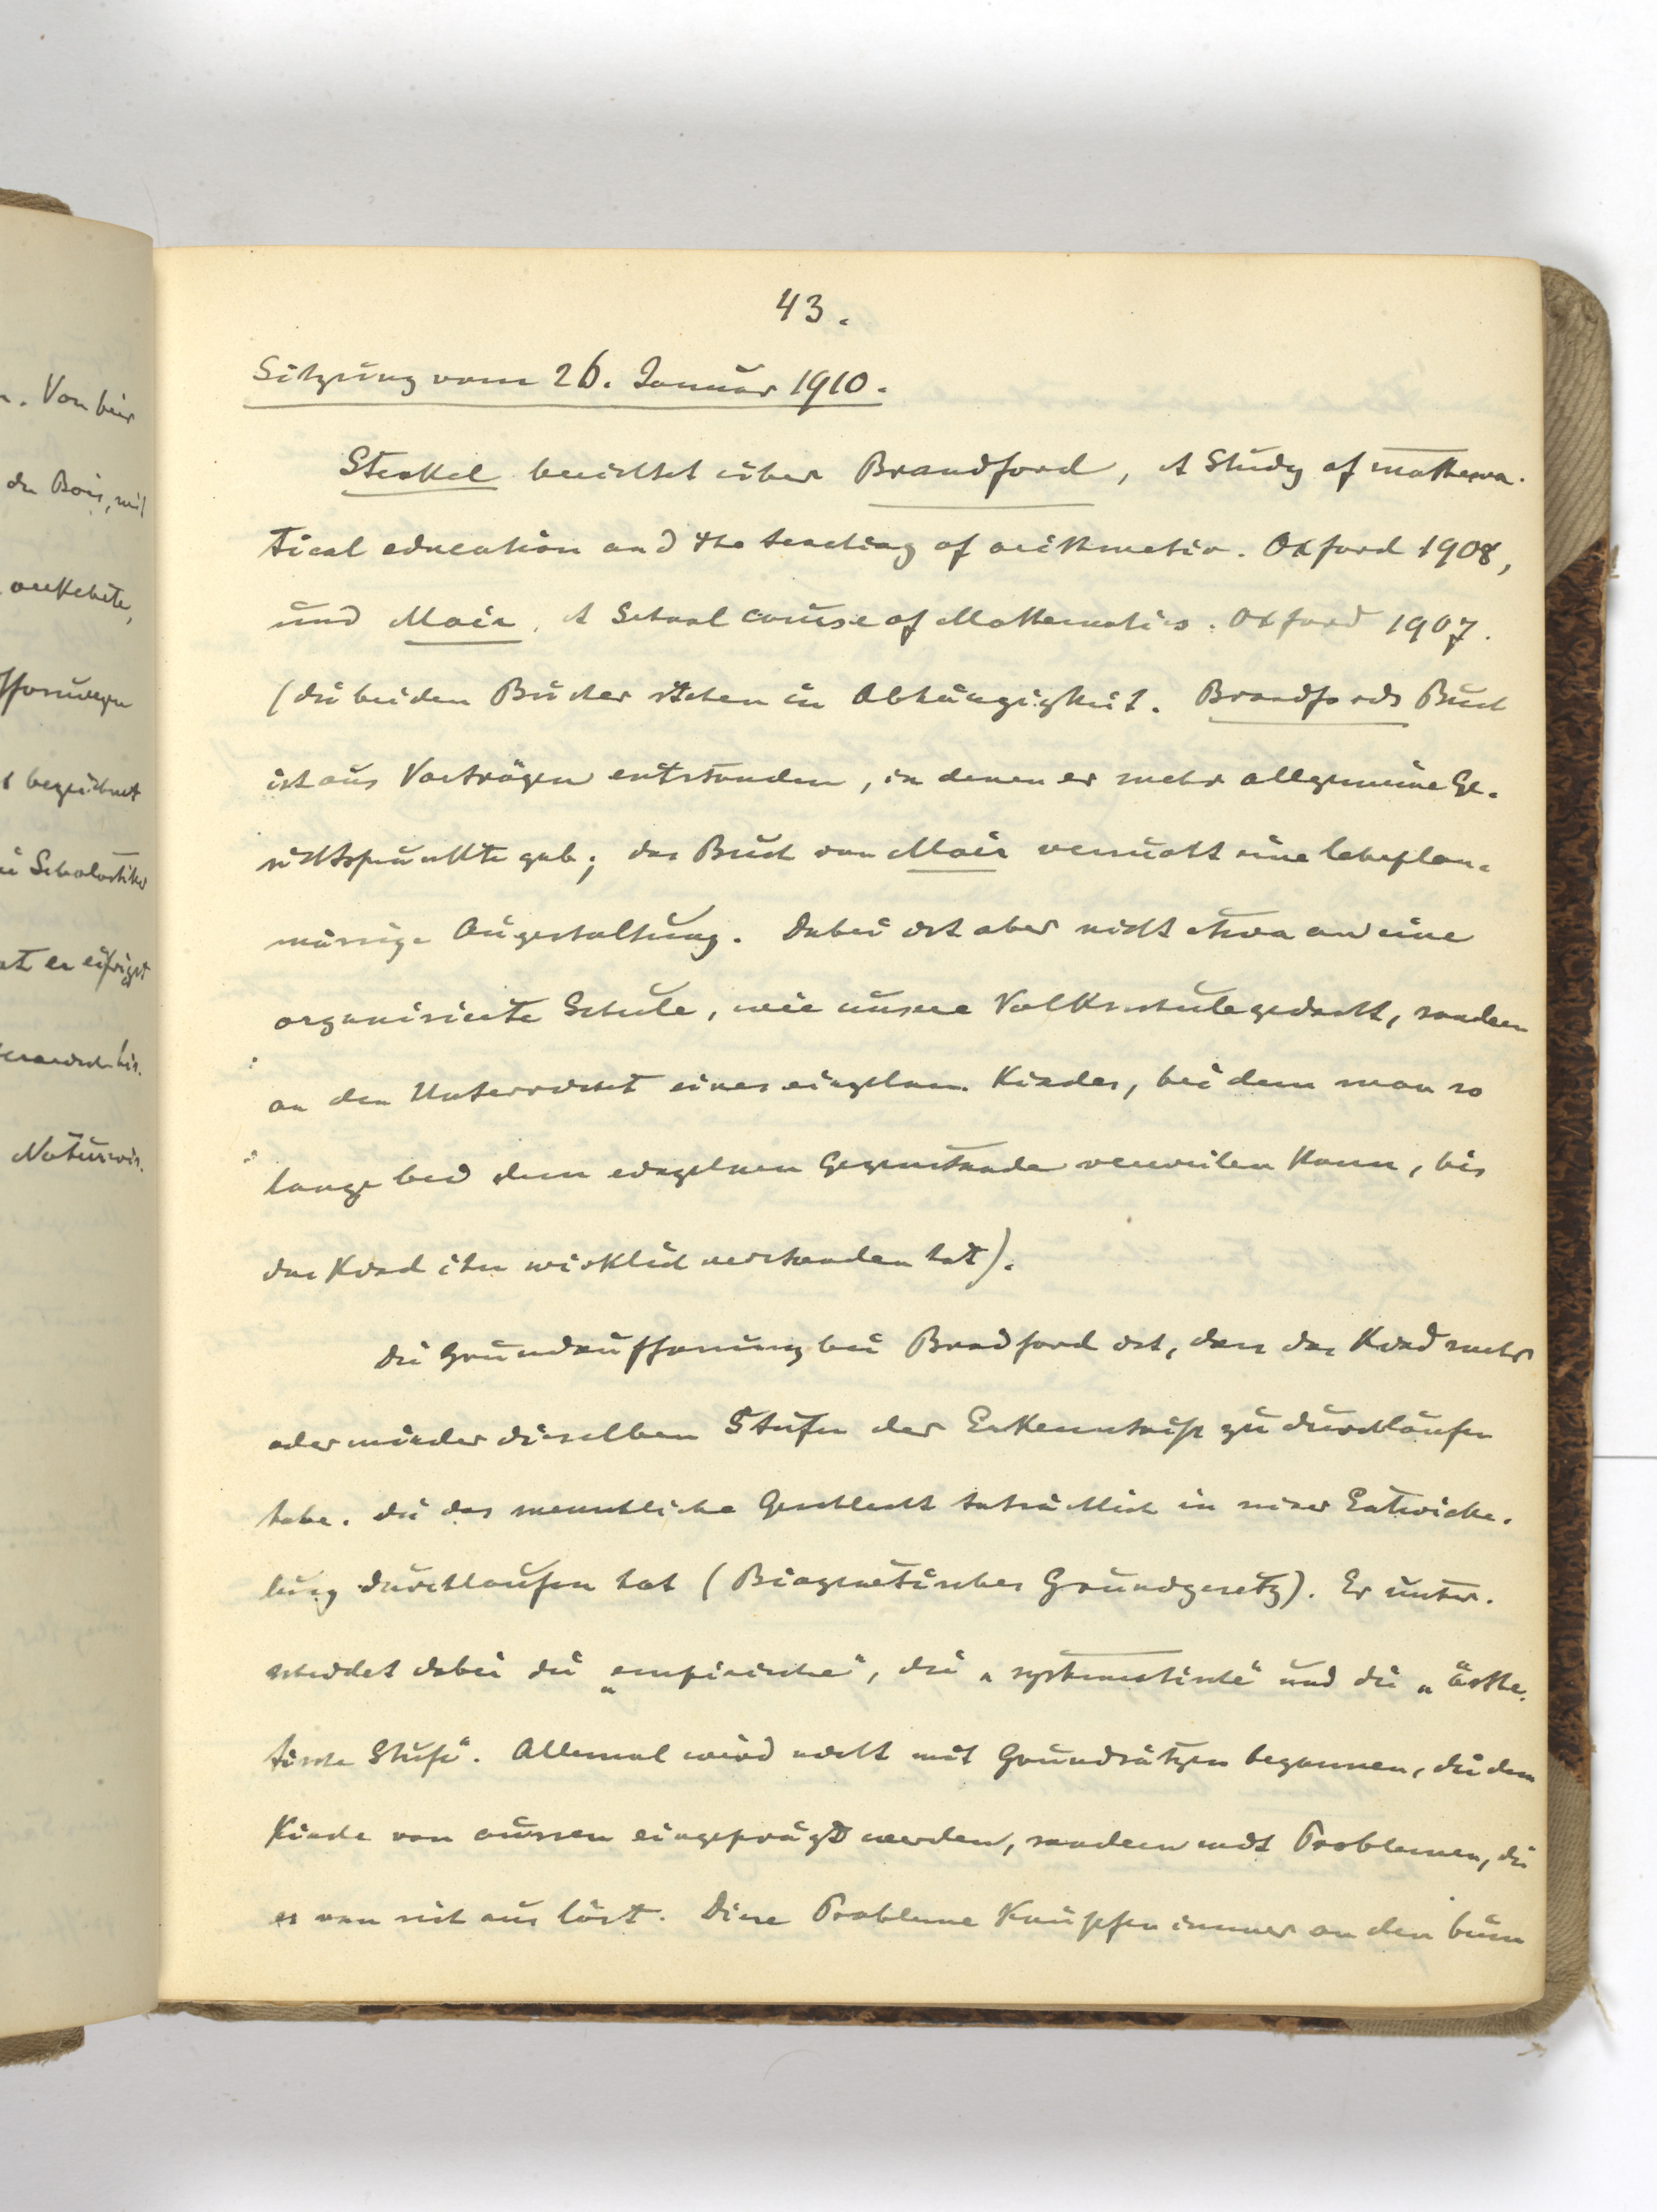 n. Von hier
du Bois, mit
ankehte,
ffassungen
t bezeichnet
ie Scholastiker
at er eifrigst
his.
Naturwis.
43.
Sitzung vom 26. Januar 1910.
Steckel berichtet über Brandford, A Study of mathema-
tical education and the teaching of arithmetic. Oxford 1908,
und Mair, A School course of Mathematics. Oxford 1907.
(die beiden Bücher stehen in Abhängigkeit. Brandfords Buch
ist aus Vorträgen entstanden, in denen er mehr allgemeine Ge-
sichtspunkte gab; das Buch von Mair versucht eine lehrplan-
mässige Ausgestaltung. Dabei ist aber nicht etwa an eine
organisierte Schule, wie unsere Volksschule gedacht, sondern
an den Unterricht eines einzelnen Kindes, bei dem man so
lange bei dem einzelnen Gegenstande verweilen kann, bis
das Kind ihn wirklich verstanden hat).
Die Grundauffassung bei Bradford ist, dass das Kind mehr
oder minder dieselben Stufen der Erkenntniss zu durchlaufen
habe, die das menschliche Geschlecht tatsächlich in seiner Entwicke-
lung durchlaufen hat (Biogenetisches Grundgesetz). Er unter-
scheidet dabei die „empirische", die „systematische" und die „ästhe-
tische Stufe". Allemal wird nicht mit Grundsätzen begonnen, die dem
Kinde von aussen eingeprägt werden, sondern mit Problemen, die
es von sich aus löst. Diese Probleme knüpfen immer an den beim